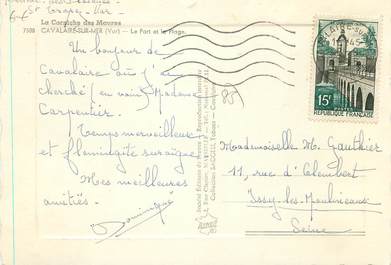 St Tropez - Var
La Corniche des Maures
7308 CAVALAIRE-SUR-MER (Var) — Le Port et la Plage.
Un bonjour de
Cavalaire où j'ai
cherché (en vain) Madame
Carpentier.
Temps merveilleux
et
Mes meilleures
amitiés.
Dominique
85
15F
REPUBLIQUE FRANÇAISE
Mademoiselle M. Gauthier
11, rue d'Alembert
Issy-les-Moulineaux
Seine